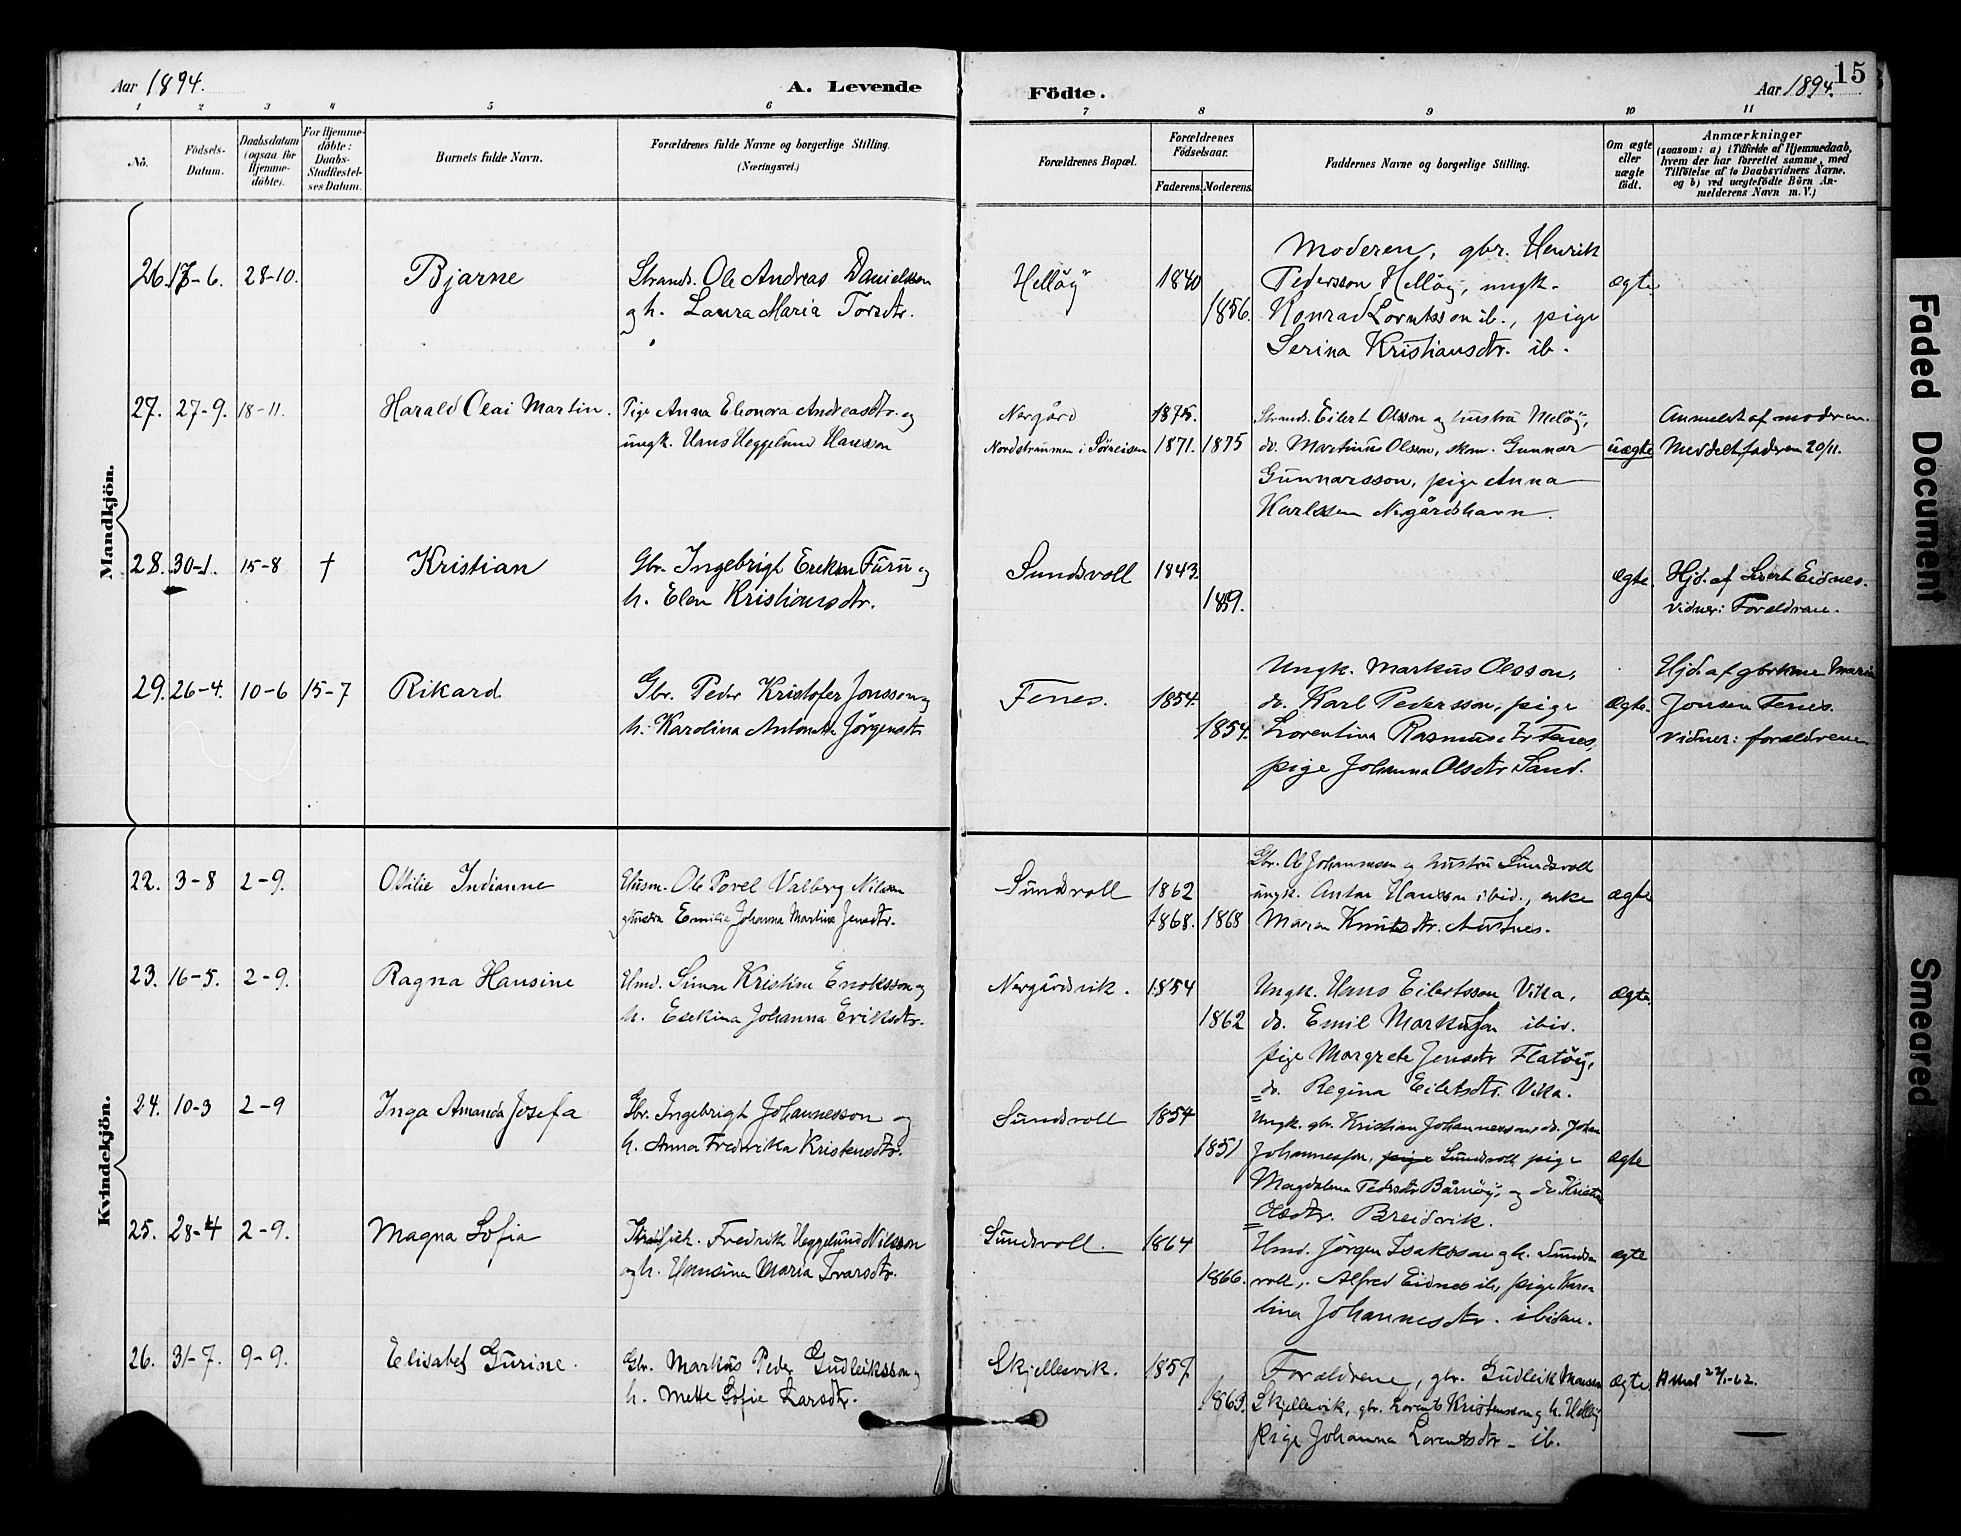 Aar 1894.
A. Levende
Födte.
Aar 1894.
15
1 2 3 4 5 6 7 8 9 10 11
Nô.
Födsels-Datum.
Daabsdatum (ogsaa for Hjemme-döbte).
For Hjemme-döbte: Daabs-Stadfæstel-ses Datum.
Barnets fulde Navn.
Forældrenes fulde Navne og borgerlige Stilling.
(Næringsvei.)
Forældrenes Bopæl.
Forældrenes Födselsaar.
Faderens. Moderens.
Faddernes Navne og borgerlige Stilling.
Om ægte eller uægte födt.
Anmærkninger
(saasom: a) i Tilfælde af Hjemmedaab,
hvem der har forrettet samme, med
Tilföielse af to Daabsvidners Navne.
og b) ved uægtefödte Börn An-
melderens Navn m. V.)
Mandkjön.
26. 17-6. 28-10. Bjarne Strands. Ole Andreas Danielsson
og h. Laura Maria Torsdtr.
Helløy 1840 1856.
Moderen, gbr. Henrik
Pedersson Helløy, ungk.
Konrad Lorntsson ib., pige
Serina Kristiansdtr. ib.
ægte
27. 27-9. 18-11. Harald Olai Martin. Pige Anna Eleonora Andreasdtr. og
ungk. Hans Heggelund Hansson
Nergård 1875.
Nordstraumen i Sørreisen 1871. 1875
Strands. Eilert Olsson og hustru Meløy,
do. Martinus Olsson, skom. Gunnar
Gunnarsson, pige Anna
Karlssen Nergårdshavn.
uægte
Anmeldt af moderen.
Meddelt faderen 20/11.
28. 30-1. 15-8 † Kristian Gbr. Ingebrigt Erikson Furu og
h. Elen Kristiansdtr.
Sundsvoll 1843. 1859.
ægte.
Hjd. af Sivert Eidnes.
vidner: Forældrene.
29. 26-4. 10-6 15-7 Rikard Gbr. Peder Kristofer Jonsson og
h. Karolina Antonette Jørgensdtr
Fenes. 1854. 1854.
Ungk. Markus Olsson,
do. Karl Pedersson, pige
Lorentina Rasmusdtr Fenes,
pige Johanna Olsdtr Sand.
ægte.
Hjd. af gbrkone Maria
Jonsen Fenes.
vidner: forældrene
Kvindekjön.
22. 3-8 2-9. Ottilie Indianne Husm. Ole Povel Valberg Nilsson
og hustru Emilie Johanna Martine Jensdtr.
Sundsvoll 1862
1868. 1868
Gbr. Ole Johannessen og hustru Sundsvoll
ungk. Anton Hansson ibid., enke
Maren Knutsdtr. Austnes.
ægte
23. 16-5. 2-9. Ragna Hansine Hmd. Simon Kristian Enoksson og
h. Esekina Johanna Eriksdtr.
Nergårdvik. 1854 1862
Ungk. Hans Eilertsson Vika,
do. Emil Markussen ibid.
pige Margrete Jensdtr Flatøy,
do. Regina Eilertsdtr. Vika.
ægte
24. 10-3 2-9 Inga Amanda Josefa Gbr. Ingebrigt Johannesson og
h. Anna Fredrika Kristensdtr.
Sundsvoll 1854 1851
Ungk. gbr. Kristian Johannesson, do. Johan
Johannessen, pige Sundsvoll pige
Magdalena Pedersdtr Bårnøy, og do. Kristine
Olsdtr. Breidvik.
ægte
25. 28-4 2-9. Magna Sofia Fredrik Heggelund Nilsson
og h. Hansina Maria Ivarsdtr.
Sundsvoll. 1864 1866.
Hmd. Jørgen Isaksson og h. Sunds-
voll, Alfred Eidnes ib., pige Karo-
lina Johannesdtr. ibidem.
ægte
26. 31-7. 9-9. Elisabet Gurine. Gbr. Markus Peder Gudleiksson og
h. Mette Sofie Larsdtr.
Skjellesvik. 1857. 1863.
Forældrene, gbr. Gudleik Hansen
Skjellesvik, gbr. Lorents Kristensson og h. Helløy
pige Johanna Lorentsdtr - ib.
ægte
Attest 22/1-62.
Faded Document
Smeared